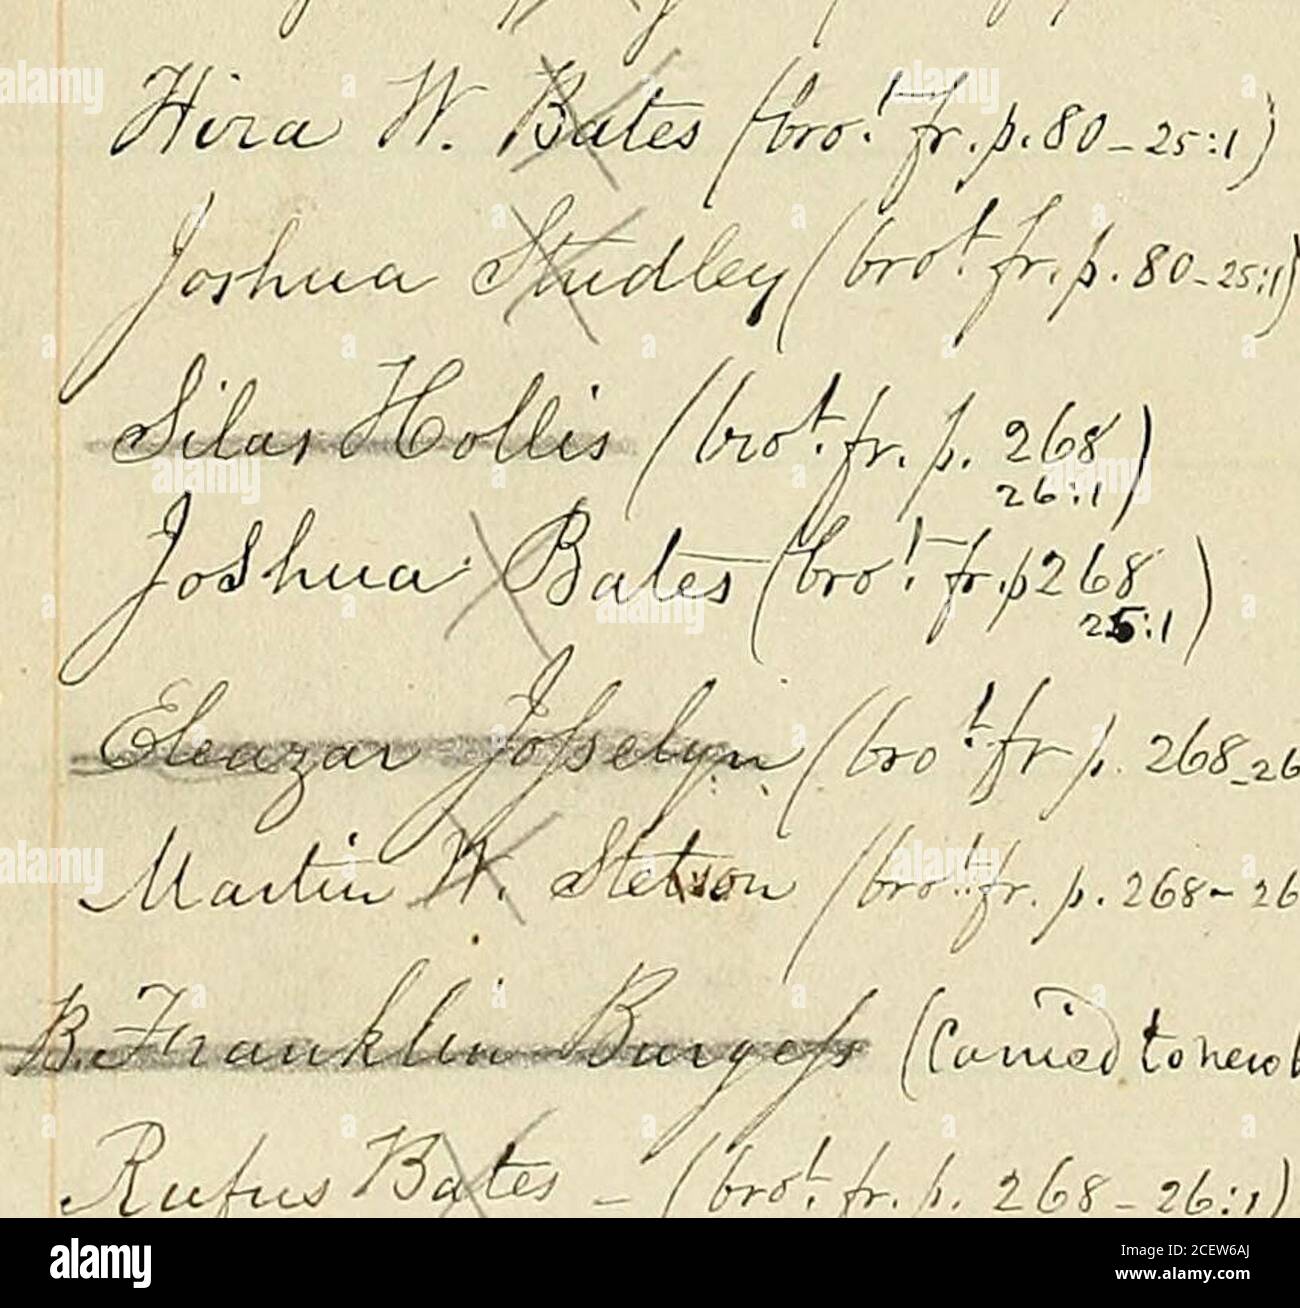 Hira W. Bates (bro.t fr. p. 80-25:1)
Joshua Studley (bro.t fr. p. 80-25:1)
Silas Hollis (bro.t fr. p. 268
26:1)
Joshua Bates (bro.t fr. p 268
25:1)
Eleazar Josselyn (bro.t fr p. 268-26
Martin W. Stetson (bro.t fr. p. 268-26
B. Franklin Burgess (Carried to new b
Rufus Bates - (bro.t fr. p. 268-26:1)
alamy
Image ID: 2CEW6AJ
www.alamy.com